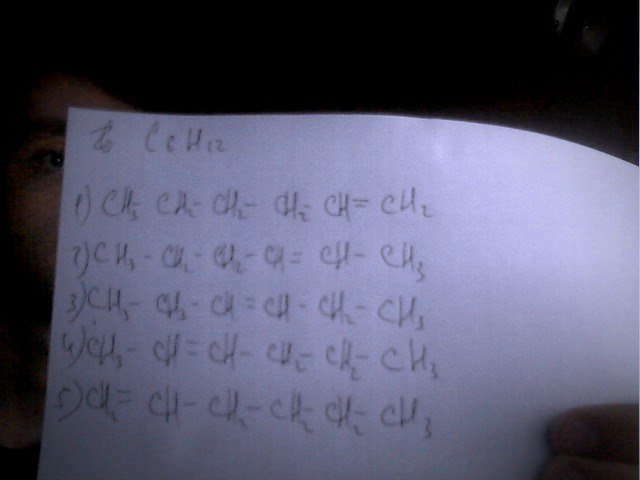 C6H12
1) CH3 CH2- CH2- CH2 CH= CH2
2) CH3 - CH2 - CH2 - CH = CH - CH3
3) CH3 - CH3 - CH = CH - CH2 - CH3
4) CH3 - CH = CH - CH2 - CH2 - CH3
5) CH2= CH - CH2 - CH2 CH2 - CH3